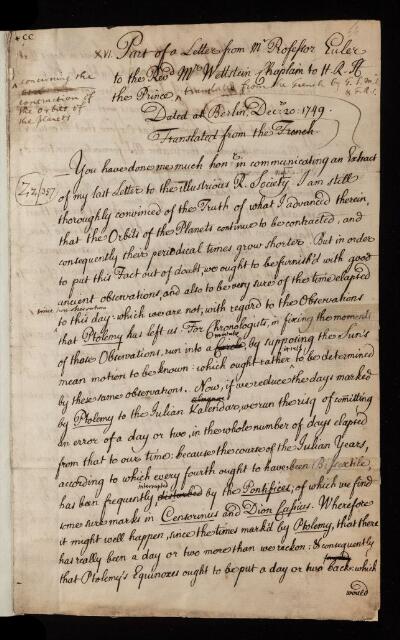 XVI. Part of a Letter from Mr. Professor Euler
to the Revd. Mr. Wettstein Chaplain to H. R. H
the Prince, translated from the French by
concerning the
contraction of
the Orbits of
the Planets
Dated at Berlin, Decr. 20: 1749.
Translated from the French.
You have done me much honr. in communicating an Extract
of my last Letter to the illustrious R. Society. I am still
thoroughly convinced of the Truth of what I advanced therein,
that the Orbits of the Planets continue to be contracted, and
consequently their periodical times grow shorter. But in order
to put this Fact out of doubt, we ought to be furnish'd with good
ancient observations, and also to be very sure of the time elapsed
to this day: which we are not, with regard to the Observations
that Ptolemy has left us. For Chronologists, in fixing the moments
of those Observations, run into a by supposing the Sun's
mean motion to be known: which ought rather to be determined
by these same observations. Now, if we reduce the days marked
by Ptolemy to the Julian Kalendar, we run the risq of committing
an error of a day or two, in the whole number of days elapsed
from that to our time: because the course of the Julian Years,
according to which every fourth ought to have been Bissextile,
has been frequently interrupted disturbed by the Pontifices; of which we find
some sure marks in Censorinus and Dion Cassius. Wherefore
it might well happen, since the times mark'd by Ptolemy, that there
has really been a day or two more than we reckon: & consequently
that Ptolemy's Equinoxes ought to be put a day or two back: which
would